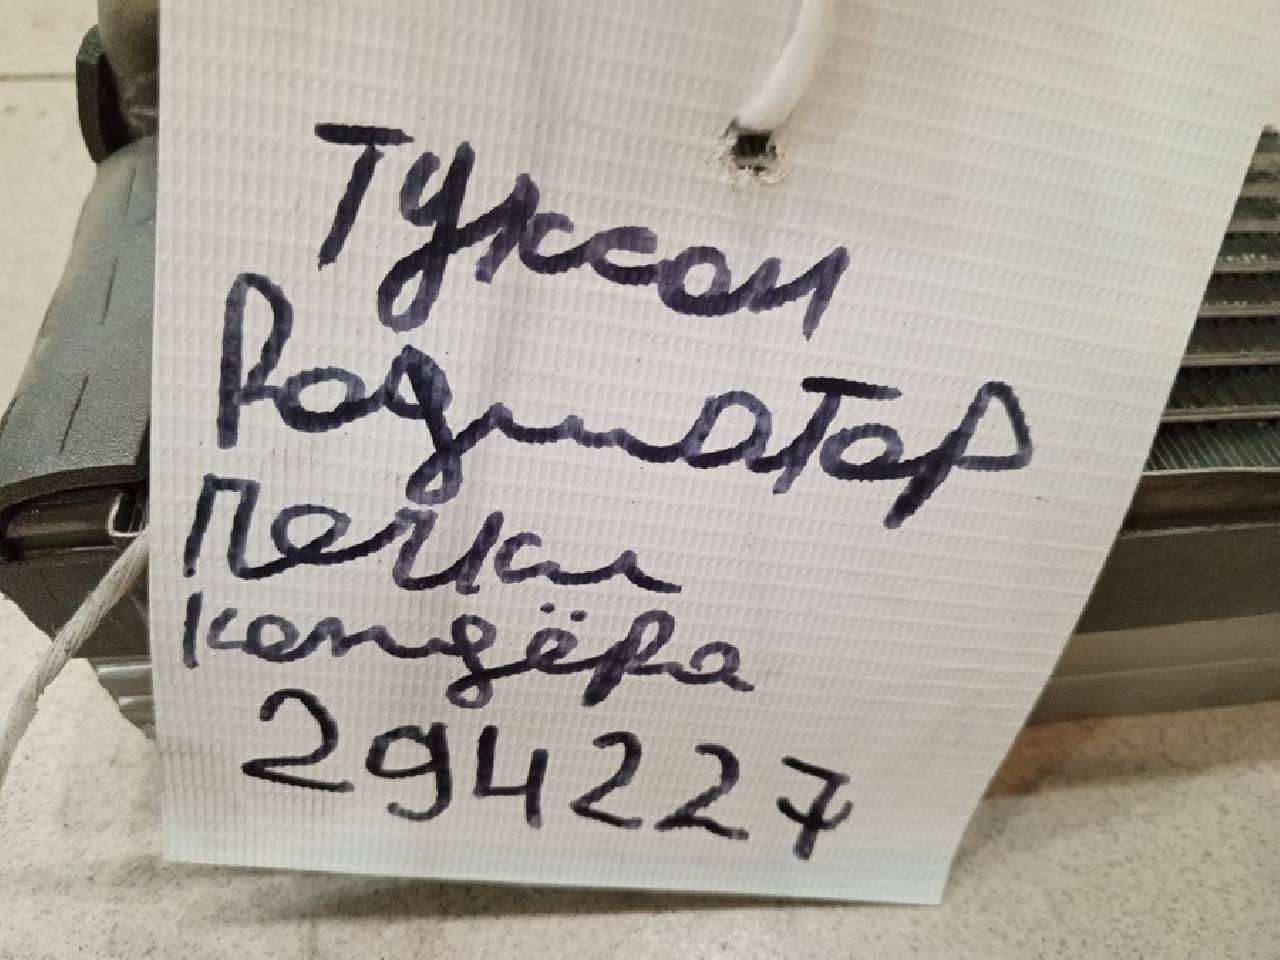 Туксон
Радиатор
печки
кондёра
294227